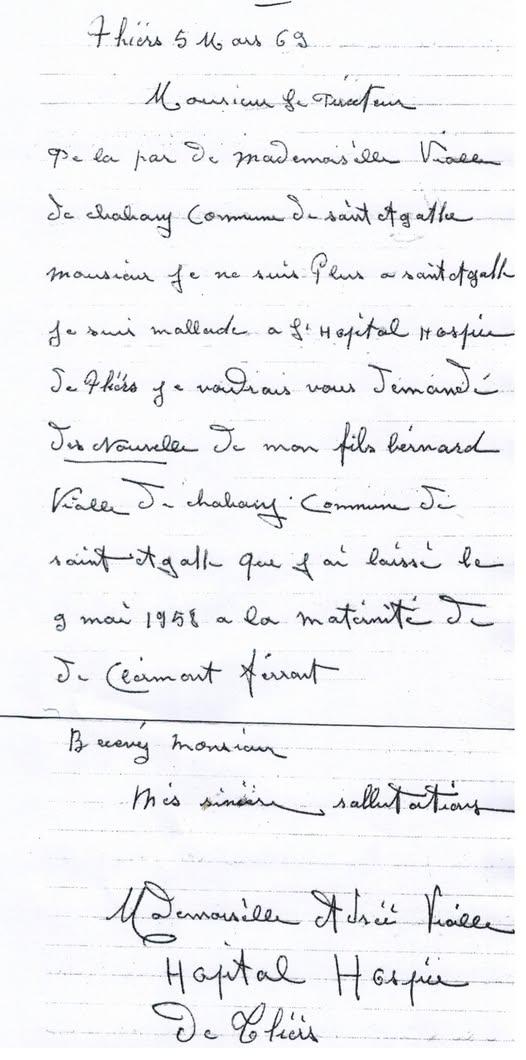 Thiers 5 Mars 69
Monsieur Le Directeur
De la par de mademoiselle Vialle
de chabany Commune de saint Agathe
monsieur je ne suis Plus a saint Agathe
je suis mallade a L'Hopital Hospice
de Thiers je voudrais vous demandé
des Nouvelle de mon fils bérnard
Vialle de chabany Commune de
saint Agathe que j'ai laissé le
9 mai 1958 a la maternité de
de Clérmont férrant
Recevéz Monsieur
Més sincère sallutations
Mademoiselle Vialle
Hopital Hospice
de Thiérs